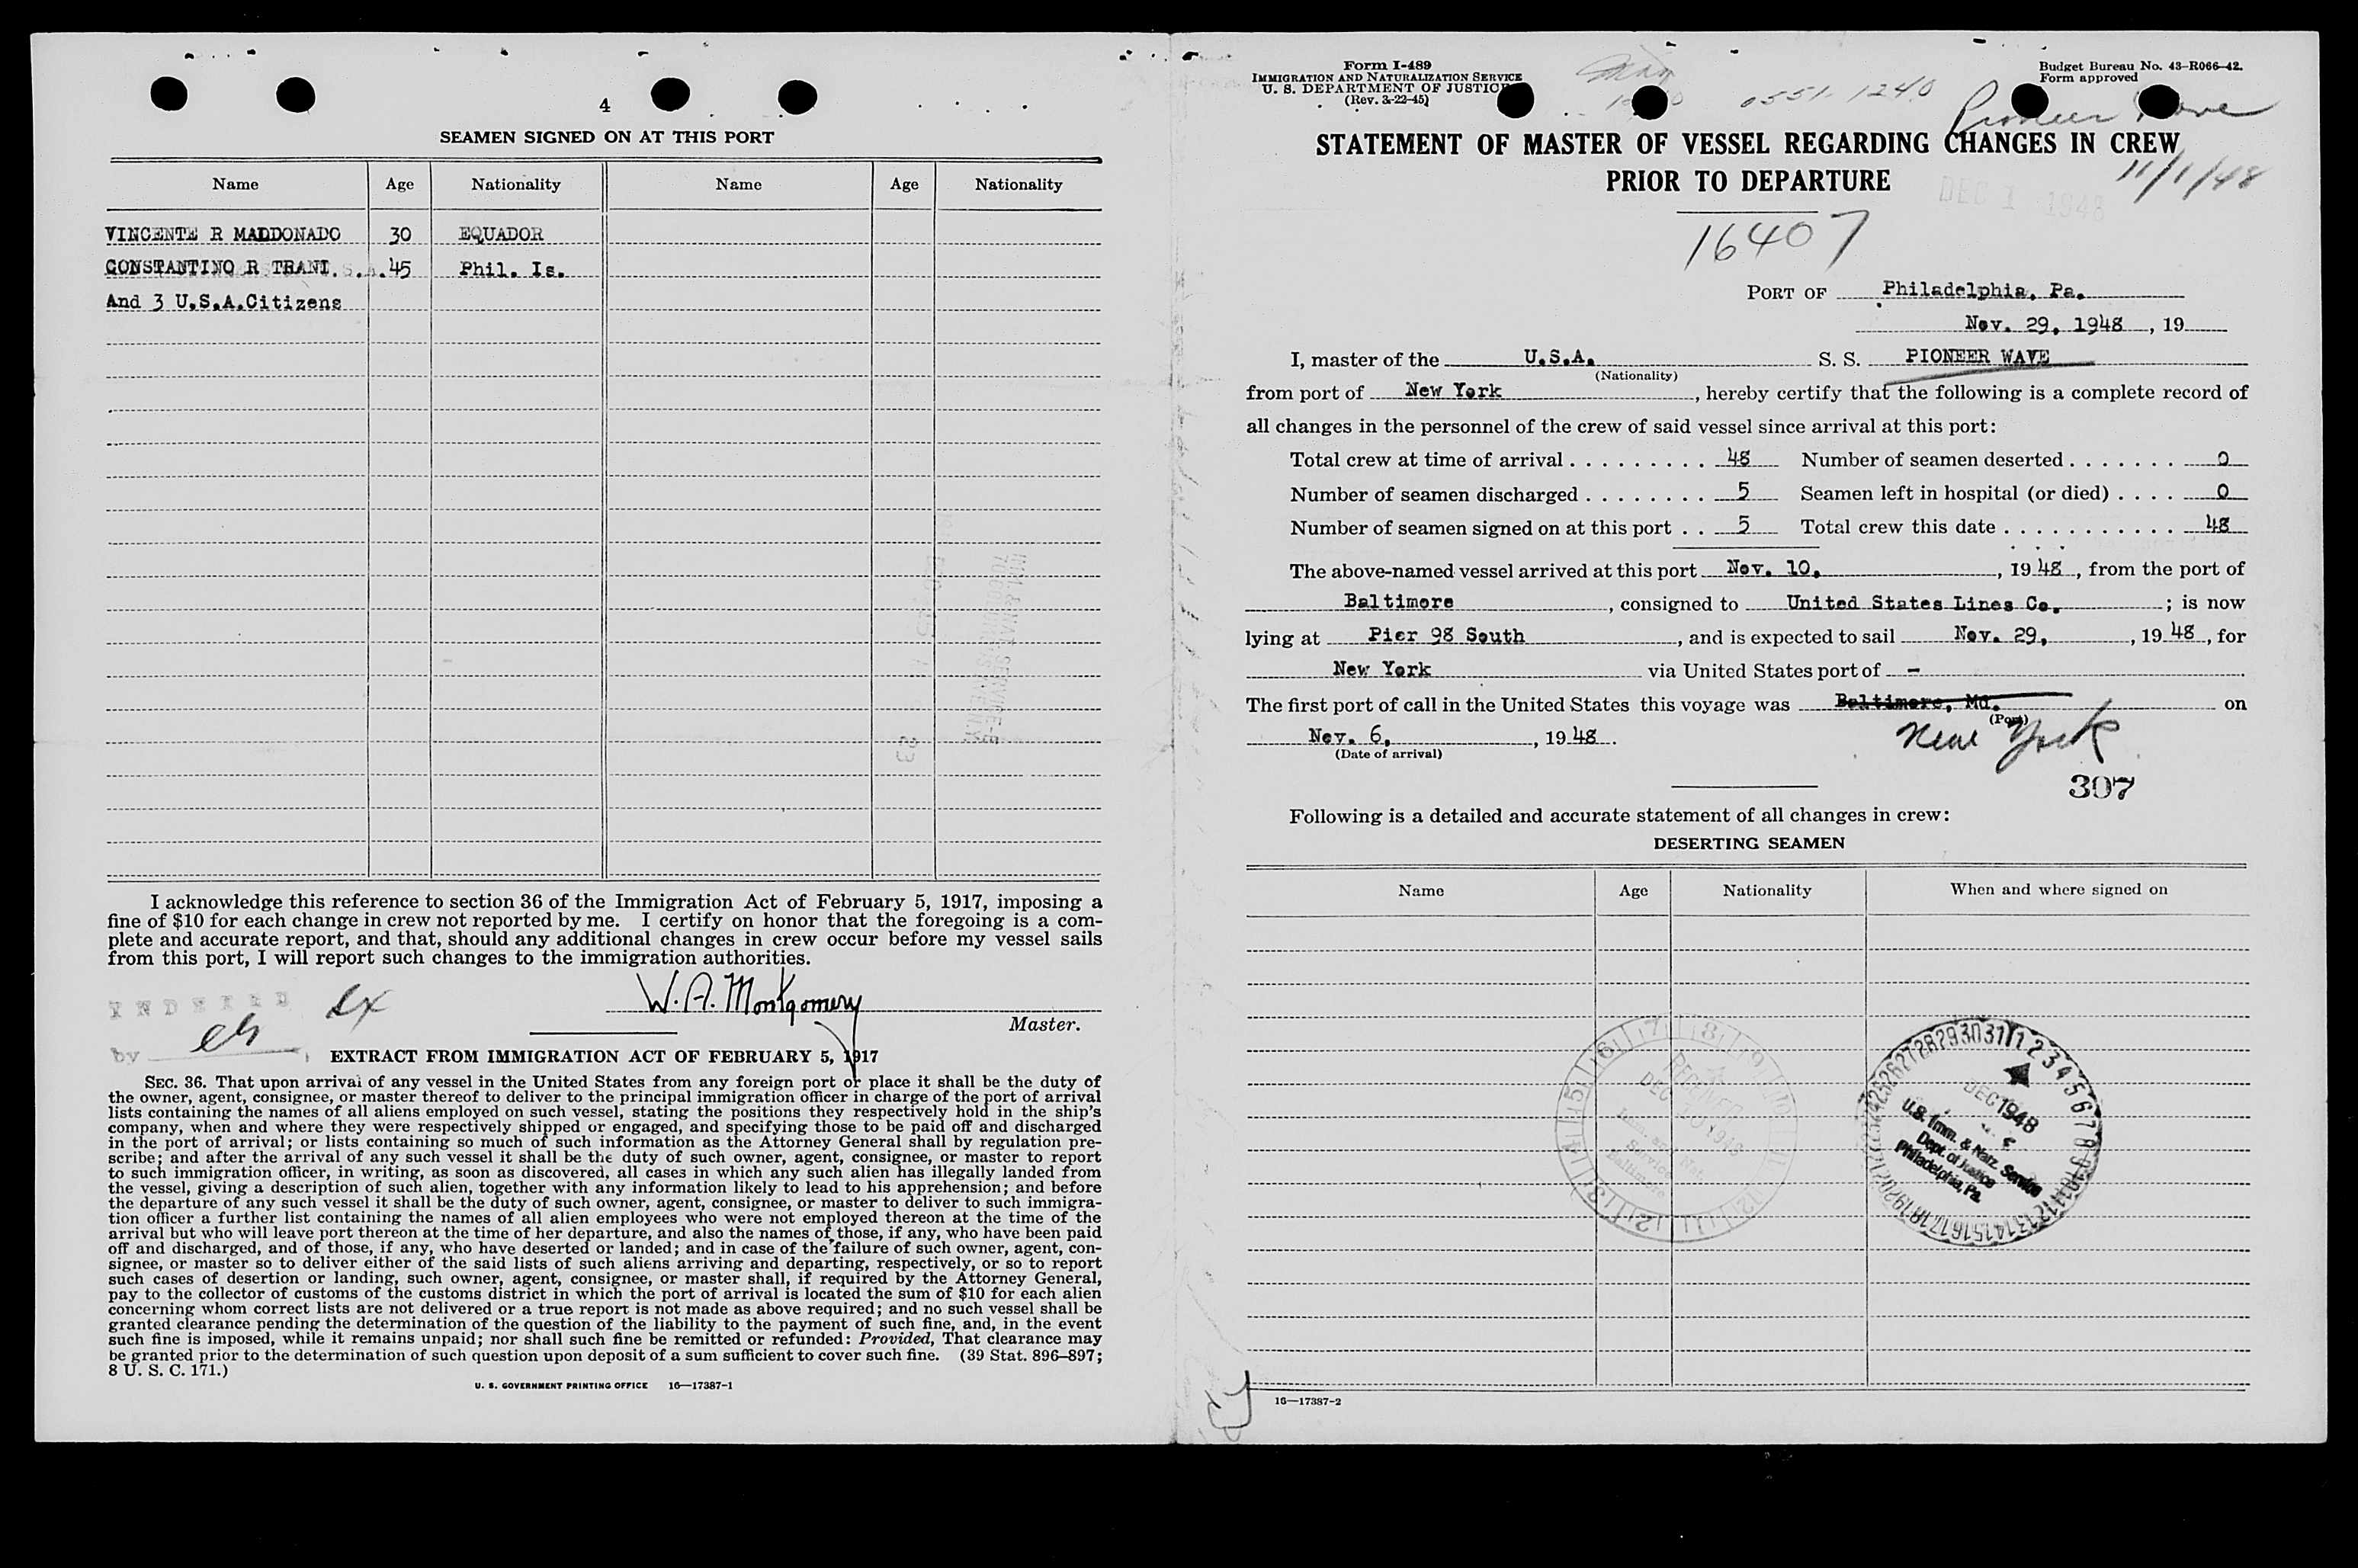 4
SEAMEN SIGNED ON AT THIS PORT
Name Age Nationality Name Age Nationality
VINCENTE R MALDONADO 30 EQUADOR
CONSTANTINO R TRANI. 45 Phil. Is.
And 3 U.S.A.Citizens
I acknowledge this reference to section 36 of the Immigration Act of February 5, 1917, imposing a
fine of $10 for each change in crew not reported by me. I certify on honor that the foregoing is a com-
plete and accurate report, and that, should any additional changes in crew occur before my vessel sails
from this port, I will report such changes to the immigration authorities.
INDEXED
by
W. A. Montgomery
Master.
EXTRACT FROM IMMIGRATION ACT OF FEBRUARY 5, 1917
SEC. 36. That upon arrival of any vessel in the United States from any foreign port or place it shall be the duty of
the owner, agent, consignee, or master thereof to deliver to the principal immigration officer in charge of the port of arrival
lists containing the names of all aliens employed on such vessel, stating the positions they respectively hold in the ship's
company, when and where they were respectively shipped or engaged, and specifying those to be paid off and discharged
in the port of arrival; or lists containing so much of such information as the Attorney General shall by regulation pre-
scribe; and after the arrival of any such vessel it shall be the duty of such owner, agent, consignee, or master to report
to such immigration officer, in writing, as soon as discovered, all cases in which any such alien has illegally landed from
the vessel, giving a description of such alien, together with any information likely to lead to his apprehension; and before
the departure of any such vessel it shall be the duty of such owner, agent, consignee, or master to deliver to such immigra-
tion officer a further list containing the names of all alien employees who were not employed thereon at the time of the
arrival but who will leave port thereon at the time of her departure, and also the names of those, if any, who have been paid
off and discharged, and of those, if any, who have deserted or landed; and in case of the failure of such owner, agent, con-
signee, or master so to deliver either of the said lists of such aliens arriving and departing, respectively, or so to report
such cases of desertion or landing, such owner, agent, consignee, or master shall, if required by the Attorney General,
pay to the collector of customs of the customs district in which the port of arrival is located the sum of $10 for each alien
concerning whom correct lists are not delivered or a true report is not made as above required; and no such vessel shall be
granted clearance pending the determination of the question of the liability to the payment of such fine, and, in the event
such fine is imposed, while it remains unpaid; nor shall such fine be remitted or refunded: Provided, That clearance may
be granted prior to the determination of such question upon deposit of a sum sufficient to cover such fine. (39 Stat. 896–897;
8 U. S. C. 171.)
U. S. GOVERNMENT PRINTING OFFICE 16—17387-1
Form I-489
IMMIGRATION AND NATURALIZATION SERVICE
U. S. DEPARTMENT OF JUSTICE
(Rev. 3-22-45)
0551-1240
Budget Bureau No. 43-R066-42.
Form approved
Pioneer Wave
11/1/48
STATEMENT OF MASTER OF VESSEL REGARDING CHANGES IN CREW
PRIOR TO DEPARTURE
DEC 1 1948
16407
PORT OF Philadelphia, Pa.
Nov. 29, 1948, 19
I, master of the U.S.A. S. S. PIONEER WAVE
(Nationality)
from port of New York, hereby certify that the following is a complete record of
all changes in the personnel of the crew of said vessel since arrival at this port:
Total crew at time of arrival . . . . . . . . . 48 Number of seamen deserted . . . . . . . 0
Number of seamen discharged . . . . . . . . 5 Seamen left in hospital (or died) . . . . 0
Number of seamen signed on at this port . . 5 Total crew this date . . . . . . . . . . . 48
The above-named vessel arrived at this port Nov. 10, , 19 48, from the port of
Baltimore, consigned to United States Lines Co. ; is now
lying at Pier 98 South, and is expected to sail Nov. 29, , 19 48, for
New York via United States port of -
The first port of call in the United States this voyage was Baltimore, Md. on
(Port)
New York
Nov. 6, , 19 48.
(Date of arrival)
307
Following is a detailed and accurate statement of all changes in crew:
DESERTING SEAMEN
Name Age Nationality When and where signed on
RECEIVED
DEC 10 1948
Service
Baltimore
DEC 1948
U.S. Imm. & Natz. Service
Dept. of Justice
Philadelphia, Pa.
16—17387-2